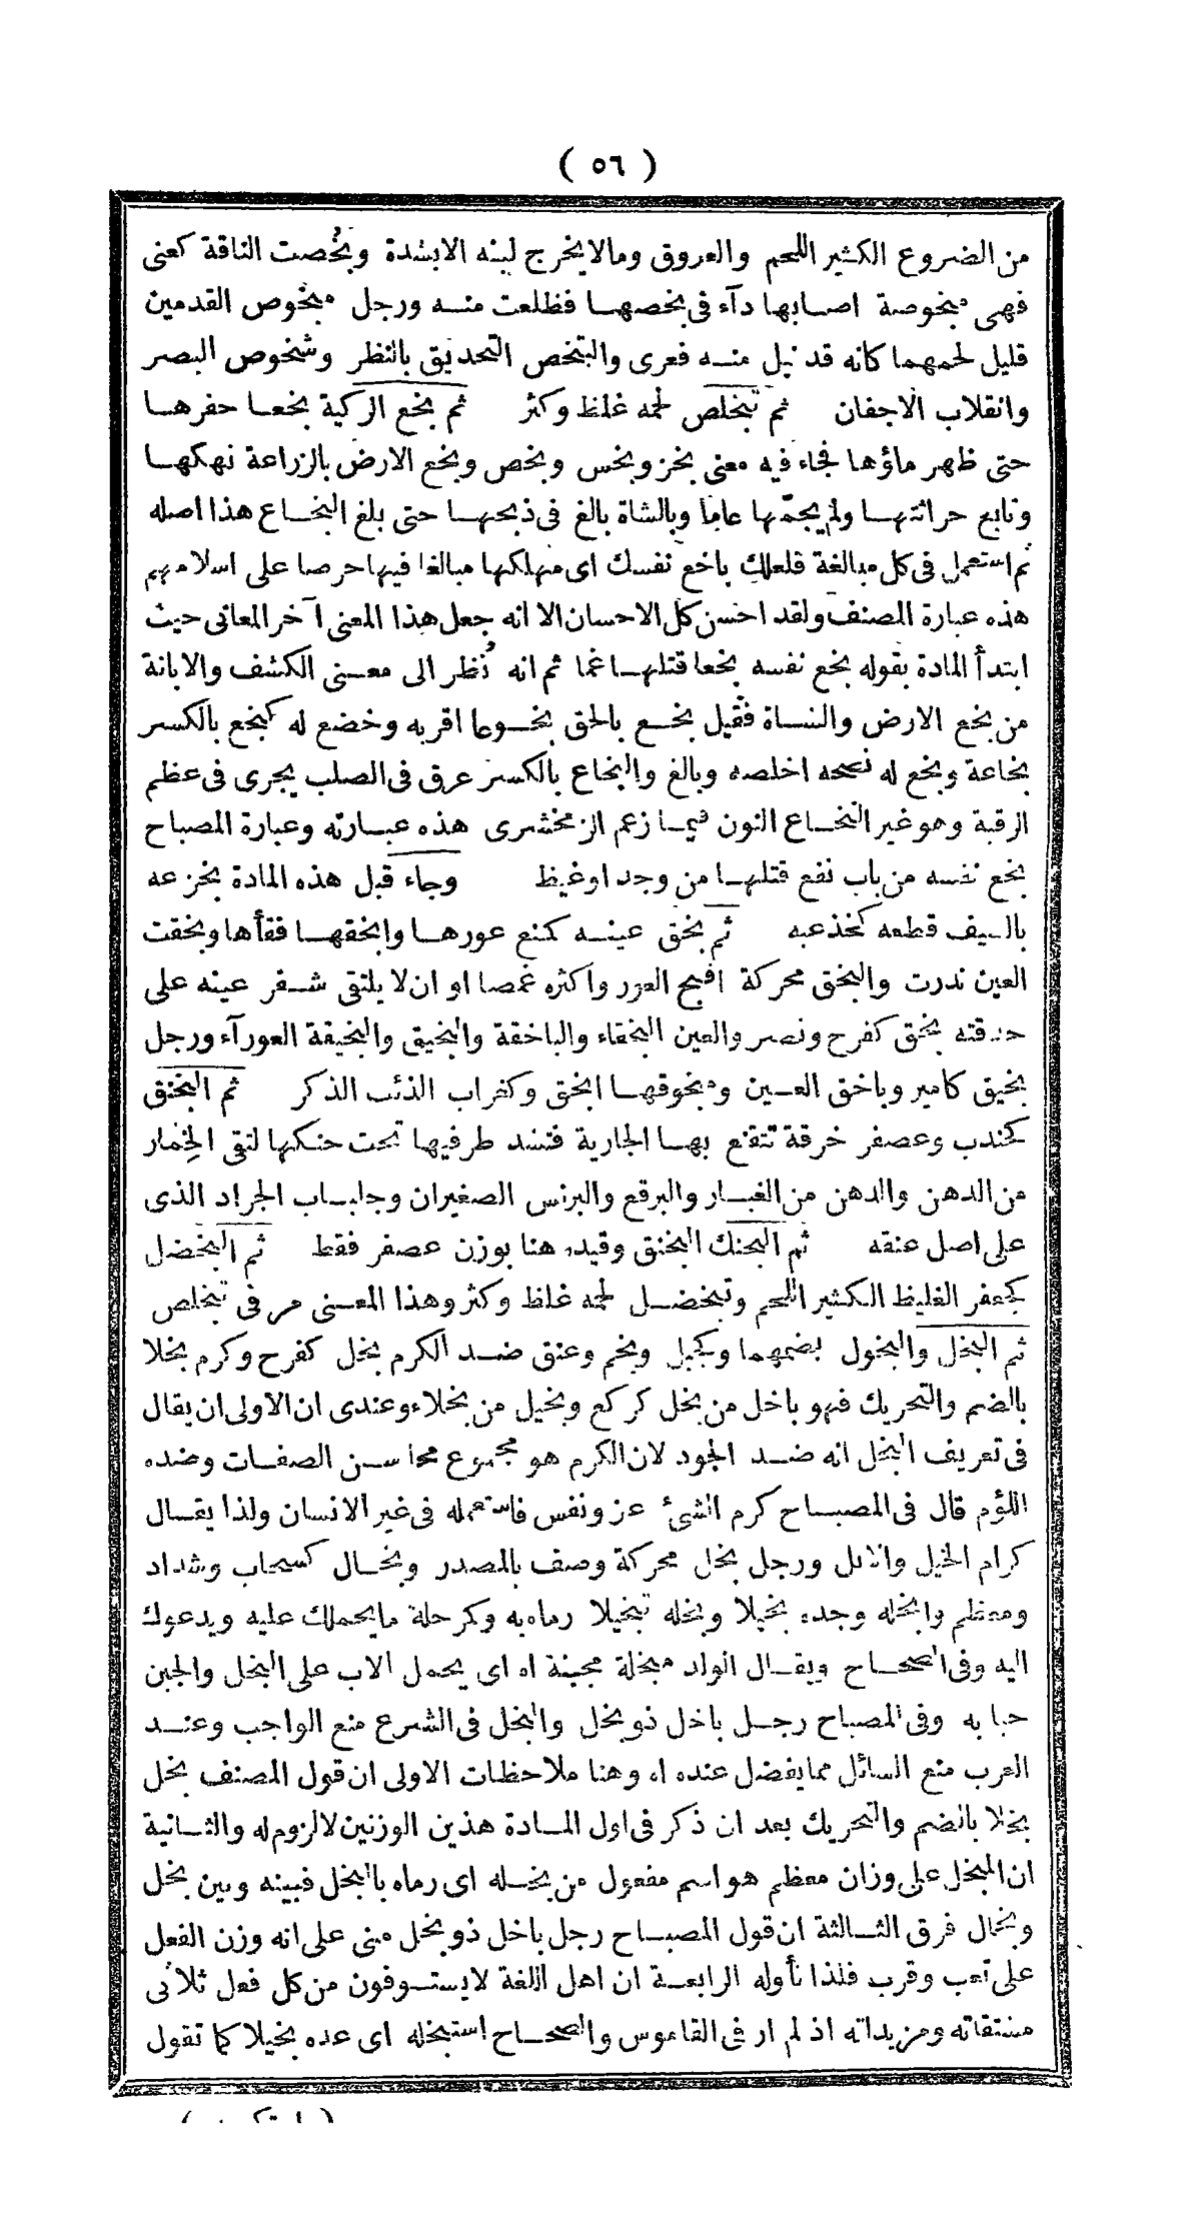 ( ٥٦ )
من الضروع الكثير اللحم والعروق ومالا يخرج لبنه الابشدة وبُخصت الناقة كعنى
فهى مبخوصة اصابها دآء فى بخصها فظلعت منه ورجل مبخوص القدمين
قليل لحمهما كانه قد نيل منه فعرى والتبخص التحديق بالنظر وشخوص البصر
وانقلاب الاجفان ثم تبخلص لحمه غلظ وكثر ثم بخع الركية بخعا حفرها
حتى ظهر ماؤها فجاء فيه معنى بخز وبخس وبخص وبخع الارض بالزراعة نهكها
وتابع حراثتها ولم يجمّها عاما وبالشاة بالغ فى ذبحها حتى بلغ البخاع هذا اصله
ثم استعمل فى كل مبالغة فلعلك باخع نفسك اى مهلكها مبالغا فيها حرصا على اسلامهم
هذه عبارة المصنف ولقد احسن كل الاحسان الا انه جعل هذا المعنى آخر المعانى حيث
ابتدأ المادة بقوله بخع نفسه بخعا قتلها غما ثم انه نُظر الى معنى الكشف والابانة
من بخع الارض والشاة فقيل بخع بالحق بخوعا اقر به وخضع له كبخع بالكسر
بخاعة وبخع له نصحه اخلصه وبالغ والبخاع بالكسر عرق فى الصلب يجرى فى عظم
الرقبة وهو غير النخاع النون فيما زعم الزمخشرى هذه عبارته وعبارة المصباح
بخع نفسه من باب نفع قتلها من وجد او غيظ وجاء قبل هذه المادة بخزعه
بالسيف قطعه كخذعبه ثم بخق عينه كمنع عورها وابخقها فقأها وبخقت
العين ندرت والبخق محركة اقبح العور واكثره غمصا او ان لا يلتقى شفر عينه على
حدقته بخق كفرح ونصر والعين البخقاء والباخقة والبخيق والبخيقة العورآء ورجل
بخيق كامير وباخق العين ومبخوقها ابخق وكغراب الذئب الذكر ثم البخنق
كجندب وعصفر خرقة تتقنع بها الجارية فتشد طرفيها تحت حنكها لتقى الخِمار
من الدهن والدهن من الغبار والبرقع والبرنس الصغيران وجلباب الجراد الذى
على اصل عنقه ثم البحنك البخنق وقيده هنا بوزن عصفر فقط ثم البخضل
كجعفر الغليظ الكثير اللحم وتبخضل لحمه غلظ وكثر وهذا المعنى مر فى تبخلص
ثم البخل والبخول بضمهما وكجبل ونجم وعنق ضد الكرم بخل كفرح وكرم بخلا
بالضم والتحريك فهو باخل من بخل كركع وبخيل من بخلاء وعندى ان الاولى ان يقال
فى تعريف البخل انه ضد الجود لان الكرم هو مجموع محاسن الصفات وضده
اللؤم قال فى المصباح كرم الشئ عز ونفس فاستعمله فى غير الانسان ولذا يقال
كرام الخيل والابل ورجل بخل محركة وصف بالمصدر وبخال كسحاب وشداد
ومعظم وابخله وجده بخيلا وبخله تبخيلا رماه به وكمرحلة ما يحملك عليه ويدعوك
اليه وفى الصحاح ويقال الولد مبخلة مجبنة اه اى يحمل الاب على البخل والجبن
حبا به وفى المصباح رجل باخل ذو بخل والبخل فى الشرع منع الواجب وعند
العرب منع السائل مما يفضل عنده اه وهنا ملاحظات الاولى ان قول المصنف بخل
بخلا بالضم والتحريك بعد ان ذكر فى اول المادة هذين الوزنين لالزوم له والثانية
ان المبخل على وزان معظم هو اسم مفعول من بخله اى رماه بالبخل فبينه وبين بخل
وبخال فرق الثالثة ان قول المصباح رجل باخل ذو بخل مبنى على انه وزن الفعل
على تعب وقرب فلذا تأوله الرابعة ان اهل اللغة لايستوفون من كل فعل ثلاثى
مشتقاته ومزيداته اذ لم ار فى القاموس والصحاح استبخله اى عده بخيلا كما تقول